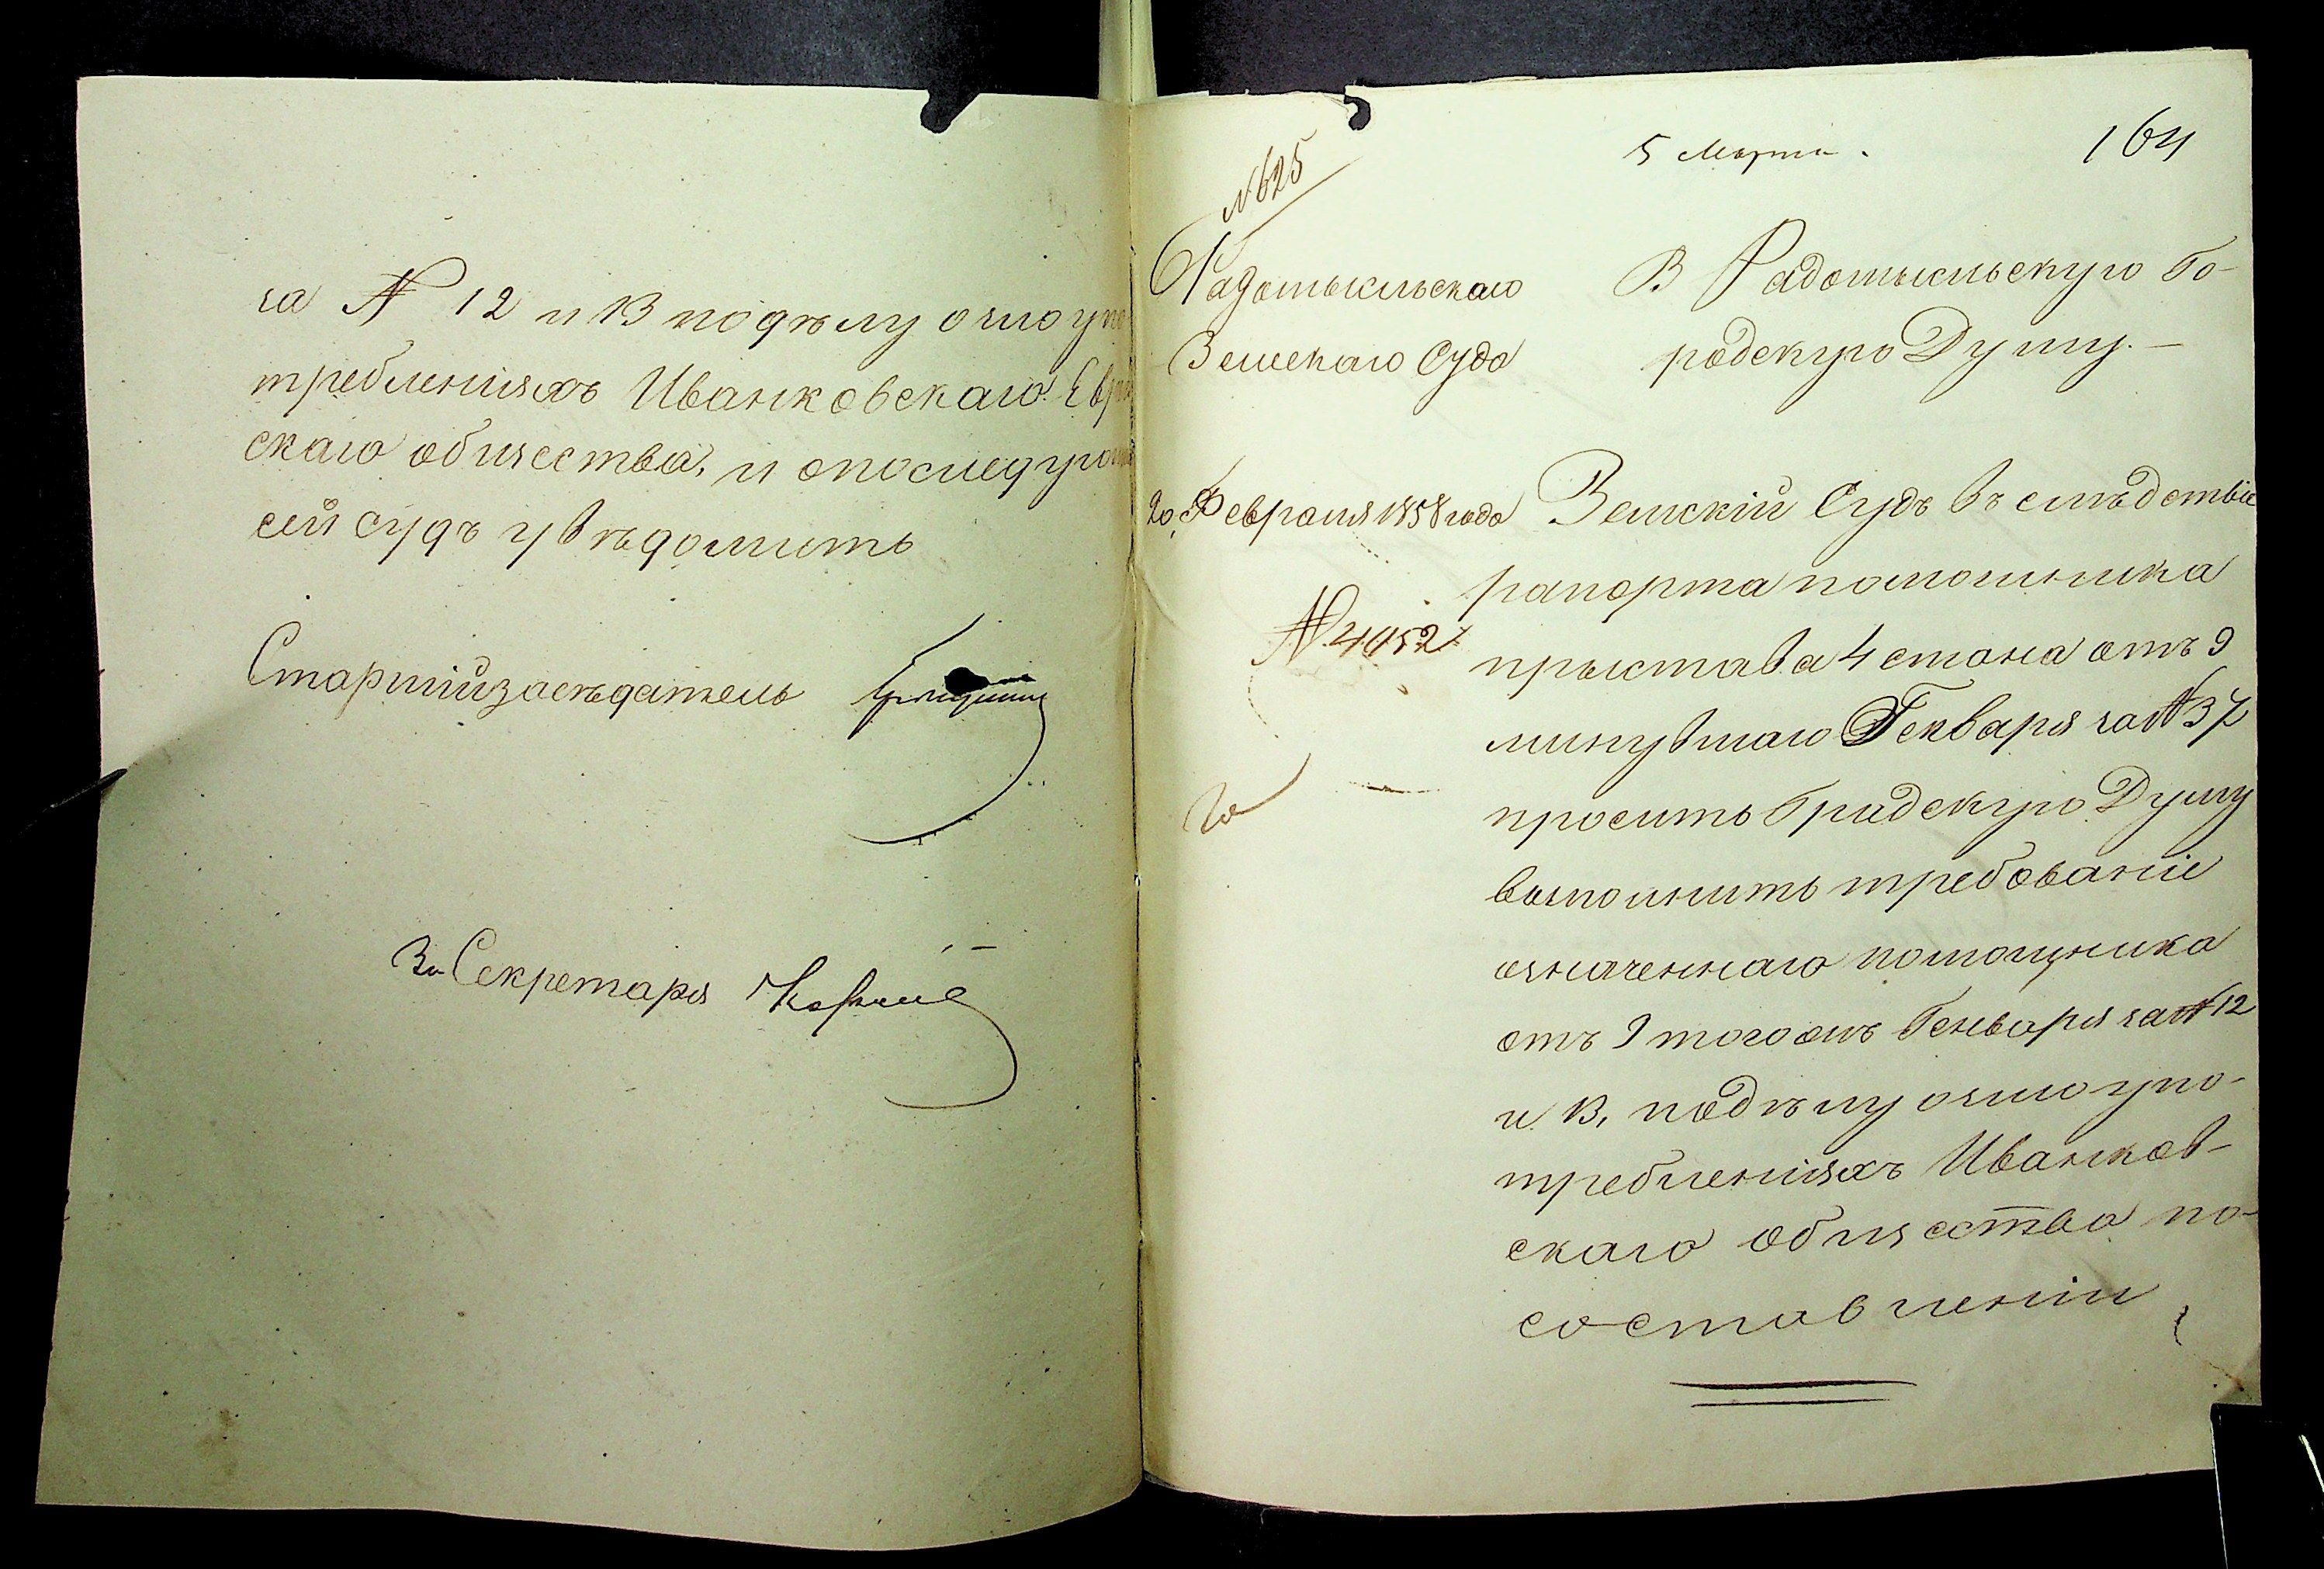 за № 12 и 13 по дѣлу о злоупо
требленіяхъ Иванковскаго Евре
скаго общества, и опоследующ
сей судъ увѣдомить
Старшій засѣдатель
За Секретаря
№ 625
5 Марта.
164
Радомысльскаго
Земскаго Суда
В Радомысльскую Го-
родскую Думу. —
20 Февраля 1858 года
№ 4052
Земскій Судъ въ слѣдствіе
рапорта помошника
прыстава 4 стана отъ 9
минувшаго Генваря за № 37
просить Градскую Думу
выполнить требованіе
означеннаго помощника
отъ 9 того жъ Генваря за № 12
и 13, по дѣлу о злоупо-
требленіяхъ Иванков-
скаго общества по-
составленіи